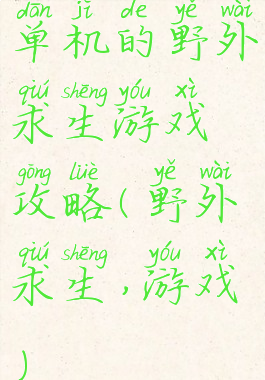 dān jī de yě wài
单机的野外
qiú shēng yóu xì
求生游戏
gōng lüè yě wài
攻略(野外
qiú shēng yóu xì
求生,游戏
)